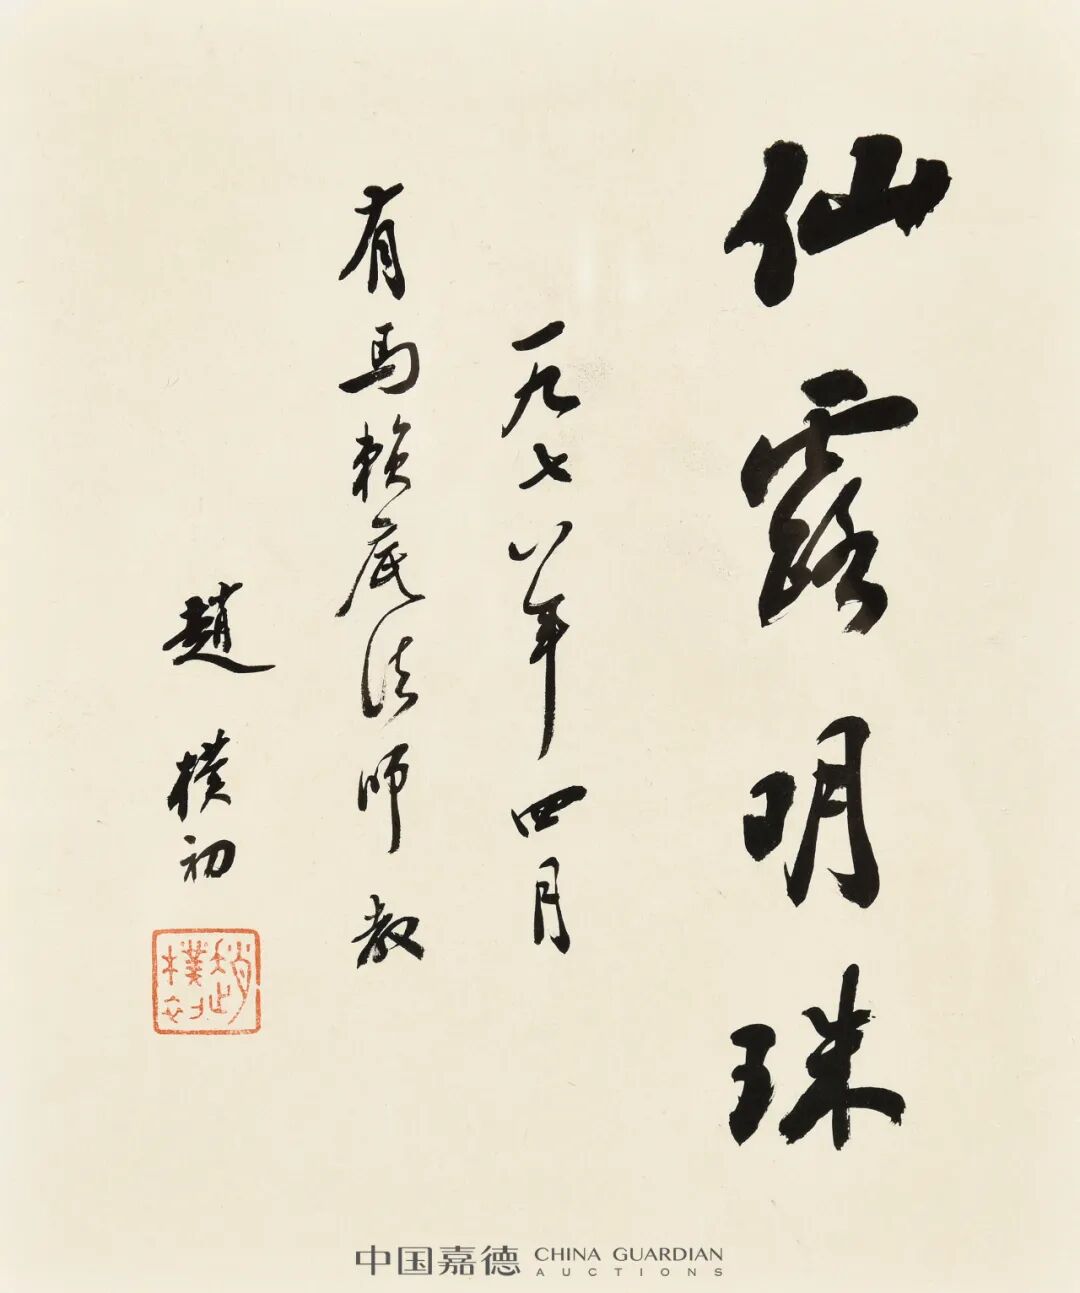 仙露明珠
一九七八年四月
有馬赖底法师教
趙樸初
趙樸初
中国嘉德 CHINA GUARDIAN
AUCTIONS